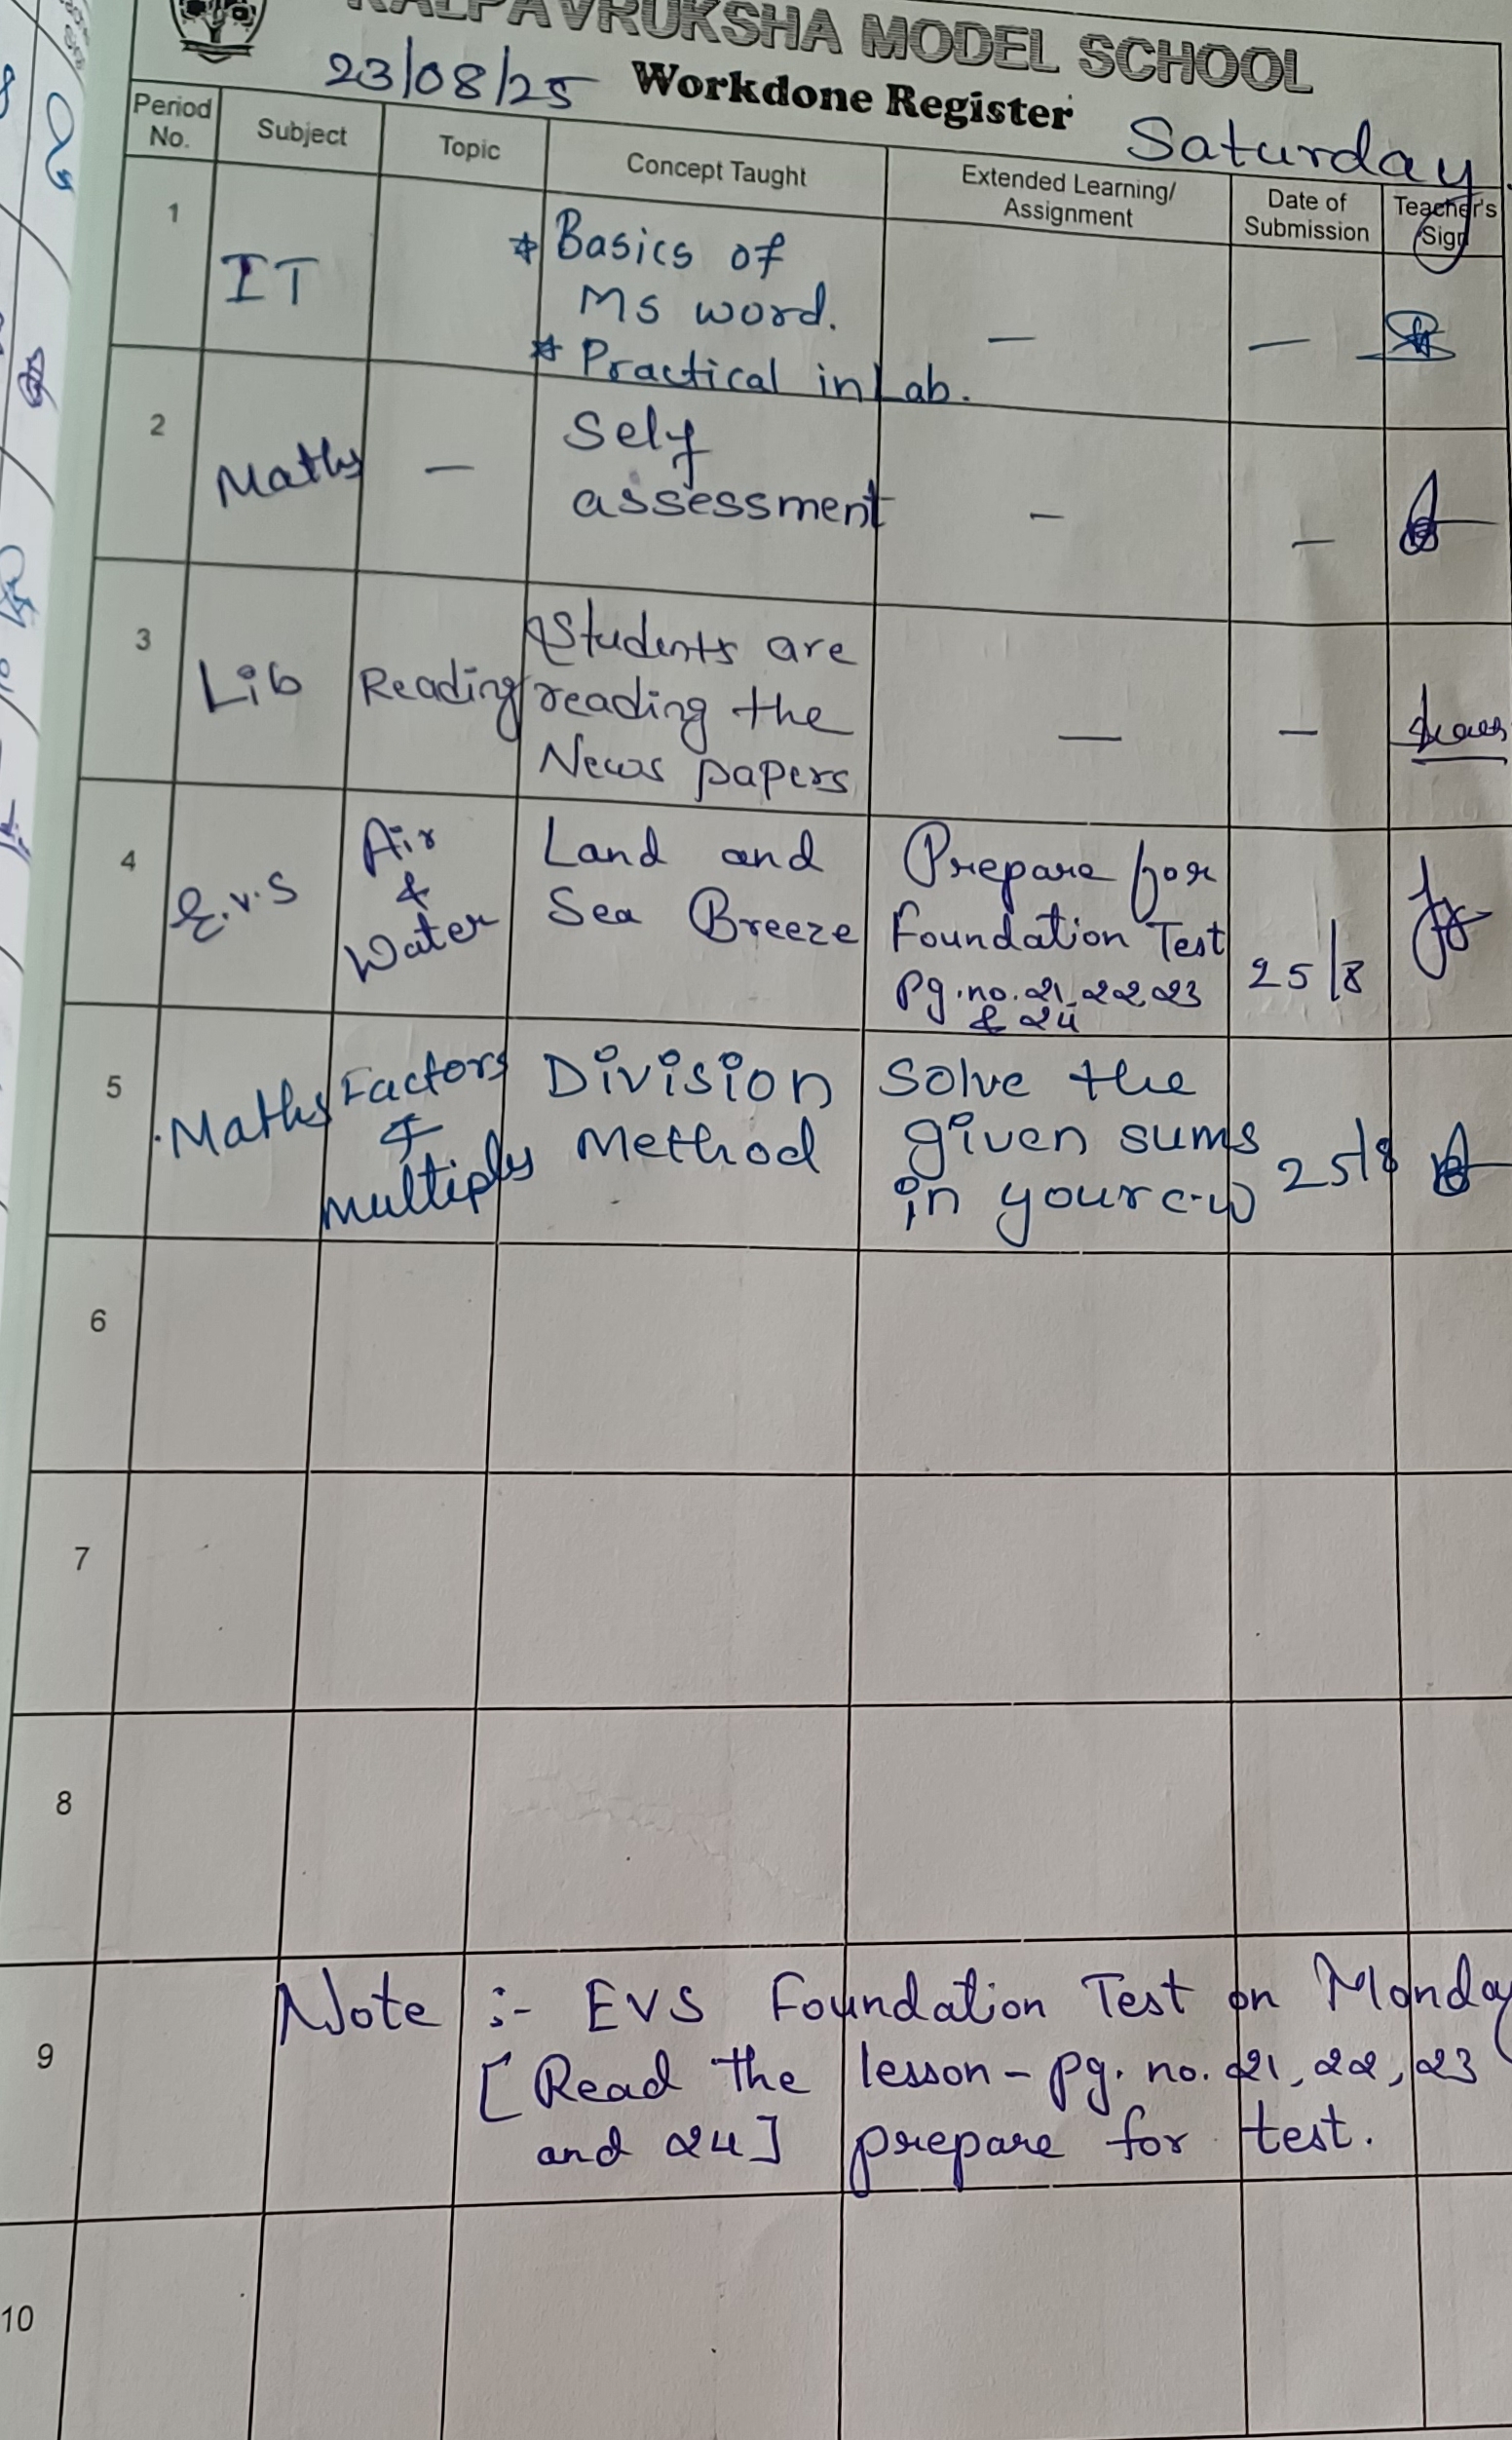 KALPAVRUKSHA MODEL SCHOOL
23/08/25 Workdone Register Saturday
Period No. Subject Topic Concept Taught Extended Learning/ Assignment Date of Submission Teacher's Sign
1 IT * Basics of
MS word. — —
* Practical in Lab.
2 Maths — Self
assessment — —
3 Lib Reading Students are
reading the — —
News papers
4 E.V.S Air Land and Prepare for
& Sea Breeze Foundation Test
Water Pg.no. 21, 22, 23 25/8
& 24
5 Maths Factors Division Solve the
& Method given sums 25/8
multiply in your c.w
6
7
8
9 Note :- EVS Foundation Test on Monday
[Read the lesson - pg. no. 21, 22, 23
and 24] prepare for test.
10